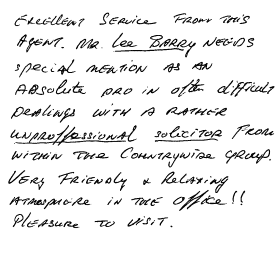 Excellent Service From this
Agent. Mr. Lee Barry needs
special mention as an
absolute pro in often difficult
dealings with a rather
unproffessional solicitor From
within the Countrywide group.
Very Friendly & Relaxing
atmosphere in the office!!
Pleasure to visit.